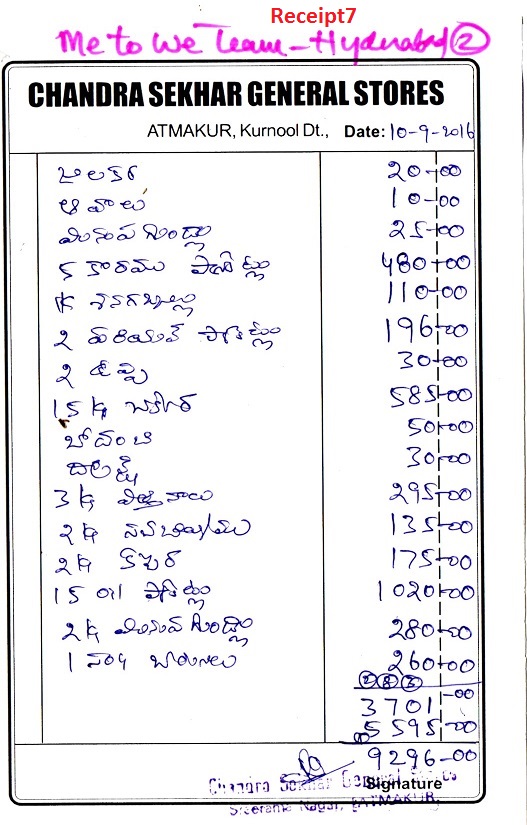 Receipt7
Me to We Team - Hyderabad ②
CHANDRA SEKHAR GENERAL STORES
ATMAKUR, Kurnool Dt., Date: 10-9-2016
జీలకర 20-00
ఆవాలు 10-00
మినుప గుండ్లు 25-00
5 కారము ప్యాకెట్లు 480-00
1K శనగబ్యాళ్లు 110-00
2 ప్యాకెట్లు 196-00
2 ఉప్పు 30-00
15 Kg 585-00
50-00
30-00
3 Kg 295-00
2 Kg 135-00
2 Kg 175-00
15 oil ప్యాకెట్లు 1020-00
2 Kg మినుప గుండ్లు 280-00
1 260-00
② ⑧ ③
3701-00
① 5595-00
9296-00
Chandra Sekhar General Stores
Signature
Sreerama Nagar, ATMAKUR.